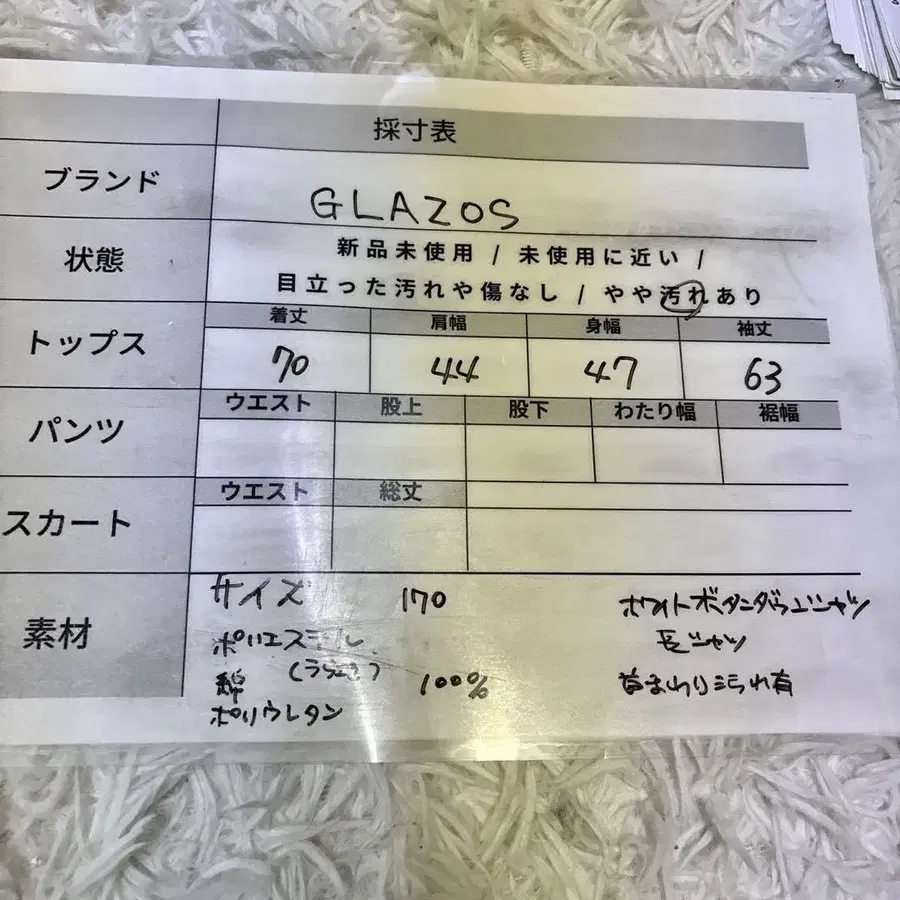 採寸表
ブランド GLAZOS
状態 新品未使用 / 未使用に近い /
目立った汚れや傷なし / やや汚れあり
トップス 着丈 肩幅 身幅 袖丈
70 44 47 63
パンツ ウエスト 股上 股下 わたり幅 裾幅
スカート ウエスト 総丈
素材 サイズ 170 ホワイトボタンダウンシャツ
ポリエステル 長シャツ
綿 100% 首まわり汚れ有
ポリウレタン